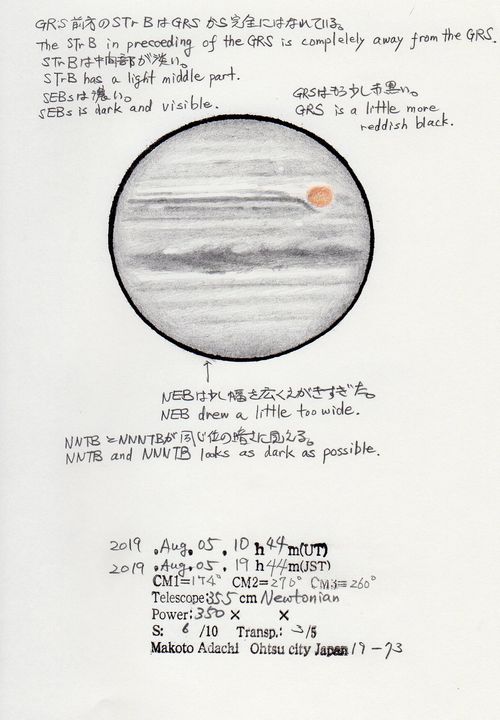 GRS前方のSTrBはGRSから完全にはなれている。
The STrB in preceeding of the GRS is complelely away from the GRS.
STrBは中間部が淡い。
STrB has a light middle part.
SEBsは濃い。
SEBs is dark and visible.
GRSはもう少し赤黒い。
GRS is a little more
reddish black.
↑
NEBは少し幅を広くえがきすぎた。
NEB drew a little too wide.
NNTBとNNNTBが同じ位の暗さに見える。
NNTB and NNNTB looks as dark as possible.
2019 .Aug. 05 . 10 h 44 m(UT)
2019 .Aug. 05 . 19 h 44 m(JST)
CM1=174° CM2=270° CM3=260°
Telescope:355 cm Newtonian
Power:350 × ×
S: 6 /10 Transp.: 3/5
Makoto Adachi Ohtsu city Japan 19-73